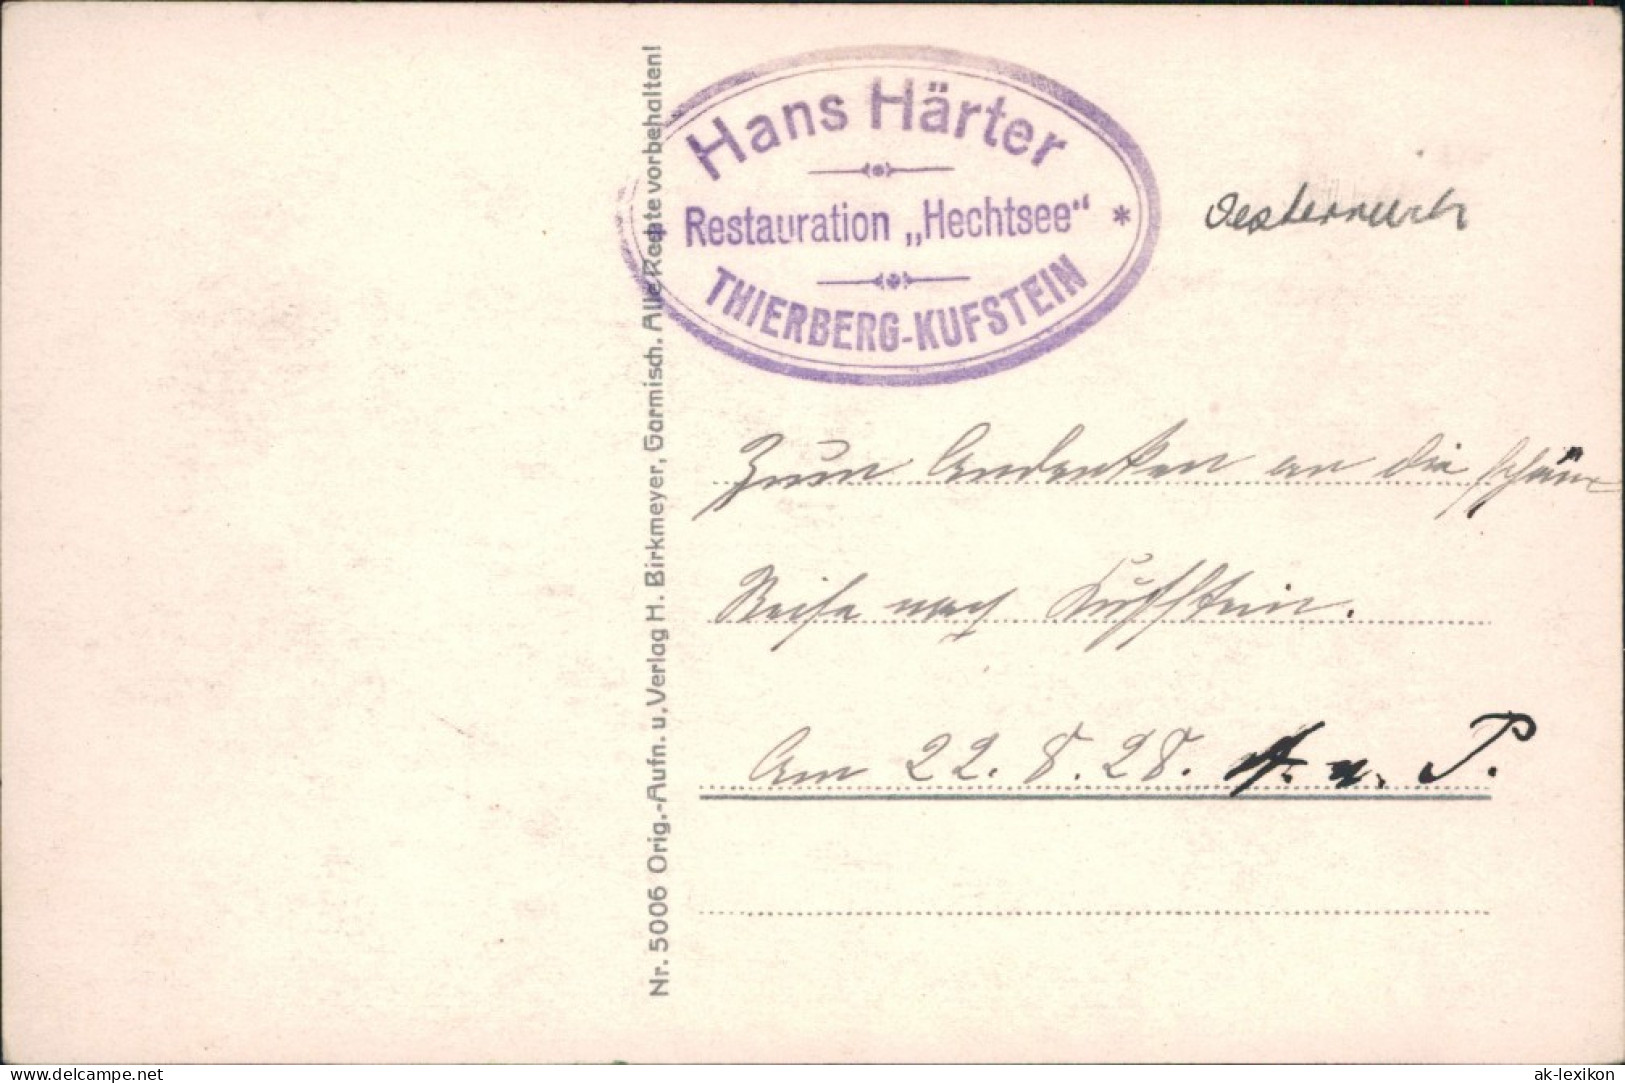 Hans Härter
Restauration „Hechtsee“ *
THIERBERG-KUFSTEIN
Oesterreich
Nr. 5006 Orig.-Aufn. u. Verlag H. Birkmeyer, Garmisch. Alle Rechte vorbehalten!
Zum Andenken an die schöne
Reise nach Kufstein.
Am 22. 8. 28. A. u. P.
www.delcampe.net
ak-lexikon